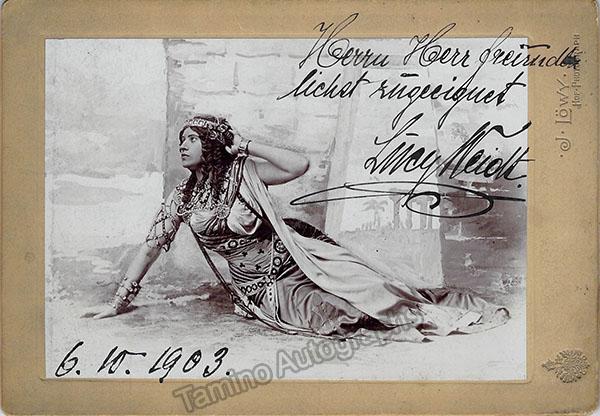 Herrn Herr freundt
lichst zugeeignet
Lucy Weidt.
6. 10. 1903.
J. LÖWY.
HOF-PHOTOGRAPH
Tamino Autographs